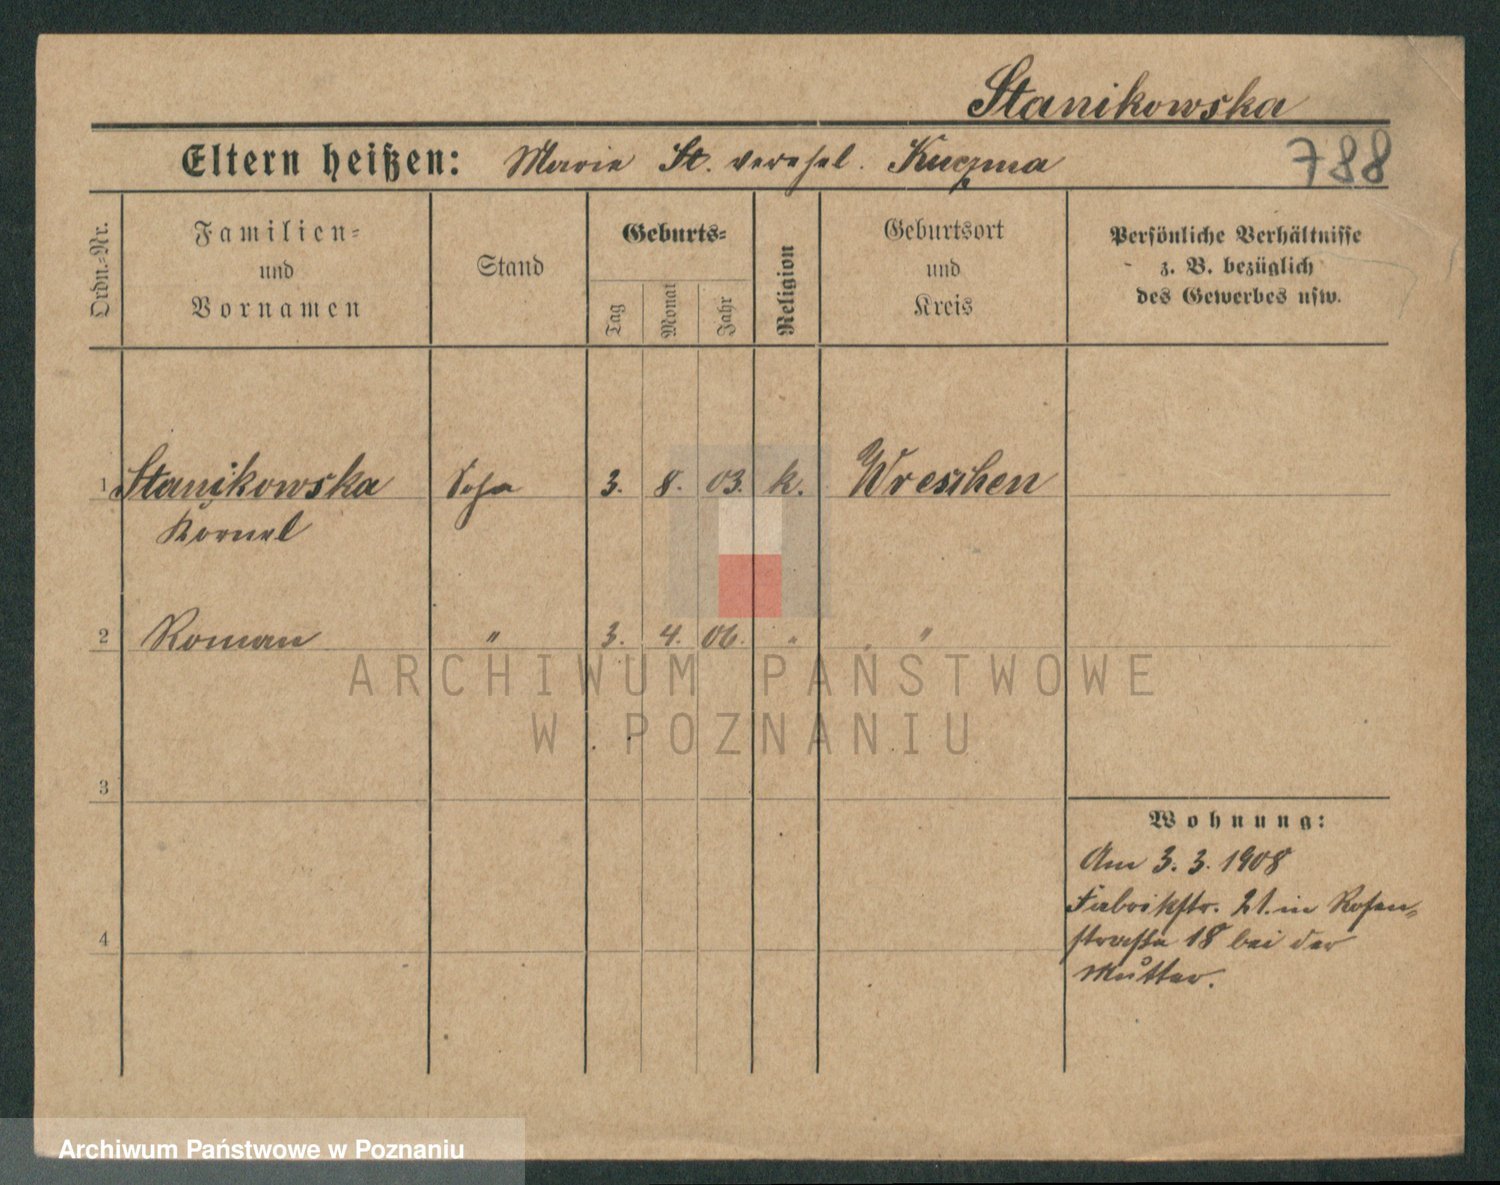 Stanikowska
Eltern heißen: Marie St. verehel. Kuczma
788
Ordn.=Nr.
Familien=
und
Vornamen
Stand
Geburts=
Tag
Monat
Jahr
Religion
Geburtsort
und
Kreis
Persönliche Verhältnisse
z. B. bezüglich
des Gewerbes usw.
1 Stanikowska 3. 8. 03. k. Wreschen
Kornel
2 Roman " 3. 4. 06. " "
ARCHIWUM PAŃSTWOWE
W POZNANIU
3
Wohnung:
Am 3. 3. 1908
Fabrikstr. 21. in Rosen=
4
straße 18 bei der
Mutter.
Archiwum Państwowe w Poznaniu